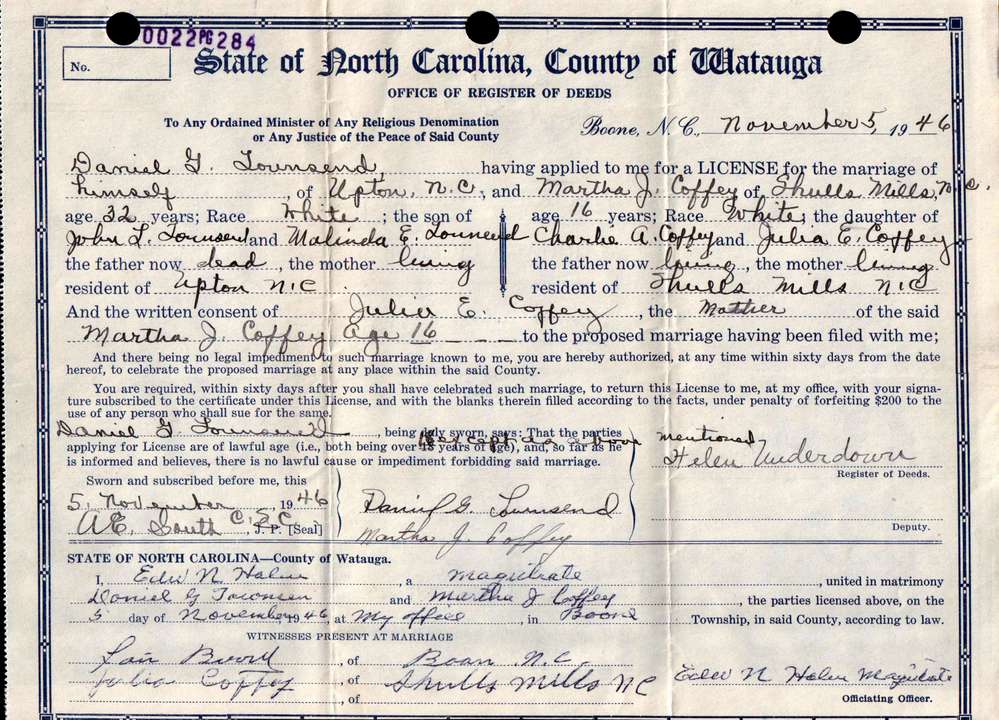 0022PG284
No.
State of North Carolina, County of Watauga
OFFICE OF REGISTER OF DEEDS
To Any Ordained Minister of Any Religious Denomination
or Any Justice of the Peace of Said County
Boone, N. C., November 5, 1946
Daniel G. Townsend, having applied to me for a LICENSE for the marriage of
himself of Upton, N.C., and Martha J. Coffey of Shulls Mills, N.C.
age 32 years; Race White; the son of age 16 years; Race White; the daughter of
John L. Townsend and Malinda E. Townsend Charlie A. Coffey and Julia E. Coffey
the father now dead, the mother living the father now living, the mother living
resident of Upton N.C. resident of Shulls Mills N.C
And the written consent of Julia E. Coffey, the Mother of the said
Martha J. Coffey, age 16 to the proposed marriage having been filed with me;
And there being no legal impediment to such marriage known to me, you are hereby authorized, at any time within sixty days from the date
hereof, to celebrate the proposed marriage at any place within the said County.
You are required, within sixty days after you shall have celebrated such marriage, to return this License to me, at my office, with your signa-
ture subscribed to the certificate under this License, and with the blanks therein filled according to the facts, under penalty of forfeiting $200 to the
use of any person who shall sue for the same.
Daniel G Townsend, being duly sworn, says: That the parties
applying for License are of lawful age (i.e., both being over 18 years of age), and, so far as he except as above mentioned
is informed and believes, there is no lawful cause or impediment forbidding said marriage.
Helen Underdown
Register of Deeds.
Sworn and subscribed before me, this
5. November, 1946
A.E. South C.S.C., J. P. [Seal]
Daniel G. Townsend
Martha J. Coffey
Deputy.
STATE OF NORTH CAROLINA—County of Watauga.
I, Edw N. , a magistrate, united in matrimony
Daniel G Townsen and Martha J Coffey, the parties licensed above, on the
5 day of November 1946 at My office, in Boone Township, in said County, according to law.
WITNESSES PRESENT AT MARRIAGE
, of Boon N.C.
Julia Coffey, of Shulls Mills NC
, of
Edw N Magistrate
Officiating Officer.